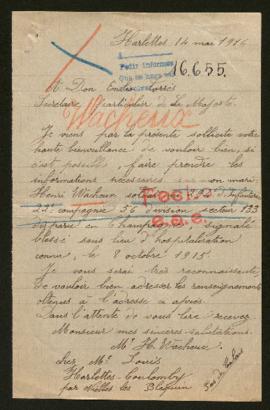 Harlettes, 14 mai 1916
Pedir informes
16.655.
A Don Emilio Torres
Secrétaire Particulier de Sa Majesté.
Wacheux
Je viens par la présente sollicité votre
haute bienveillance de vouloir bien, si
c'est possible, faire prendre les
informations nécessaires sur mon mari,
Henri Wacheux soldat
22e compagnie 56 division secteur 133
disparu en Champagne signalé
blessé sous lieu d'hospitalisation
connu, le 8 octobre 1915.
Je vous serai très reconnaissante,
de vouloir bien adresser les renseignements
obtenus à l'adresse ci après.
Dans l'attente de vous lire recevez
Monsieur mes sincères salutations.
Me H. Wacheux
chez Mr Louis
Harlettes-Coulomby
par Nielles les Bléquin
Pas de Calais